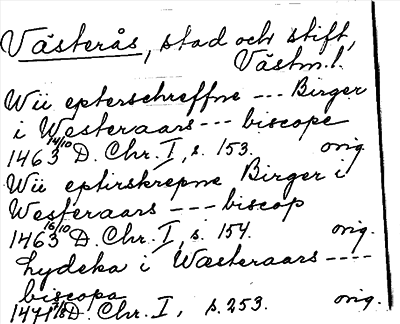 Västerås, stad och stift,
Västm.l.
Wii epterschreffne --- Birger
i Westeraars --- biscope
1463 14/10 D. Chr. I, s. 153. orig.
Wii eptirskrepne Birger i
Westeraars --- biscop
1463 16/10 D. Chr. I, s. 154. orig.
Lydeka i Wæsteraars ----
biscopa
1471 D. Chr. I, s. 253. orig.